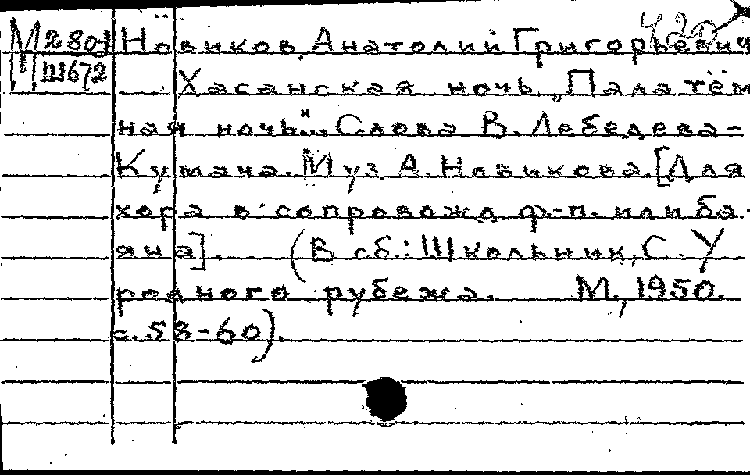 М 2801 Новиков, Анатолий Григорьевич
Ш672 Хасанская ночь. „Пала тём
ная ночь"... Слова В. Лебедева-
Кумача. Муз А. Новикова. [Для
хора в сопровожд ф-п. или ба-
яна]. (В сб.: Школьник, С. У
родного рубежа. М., 1950.
с. 58-60).